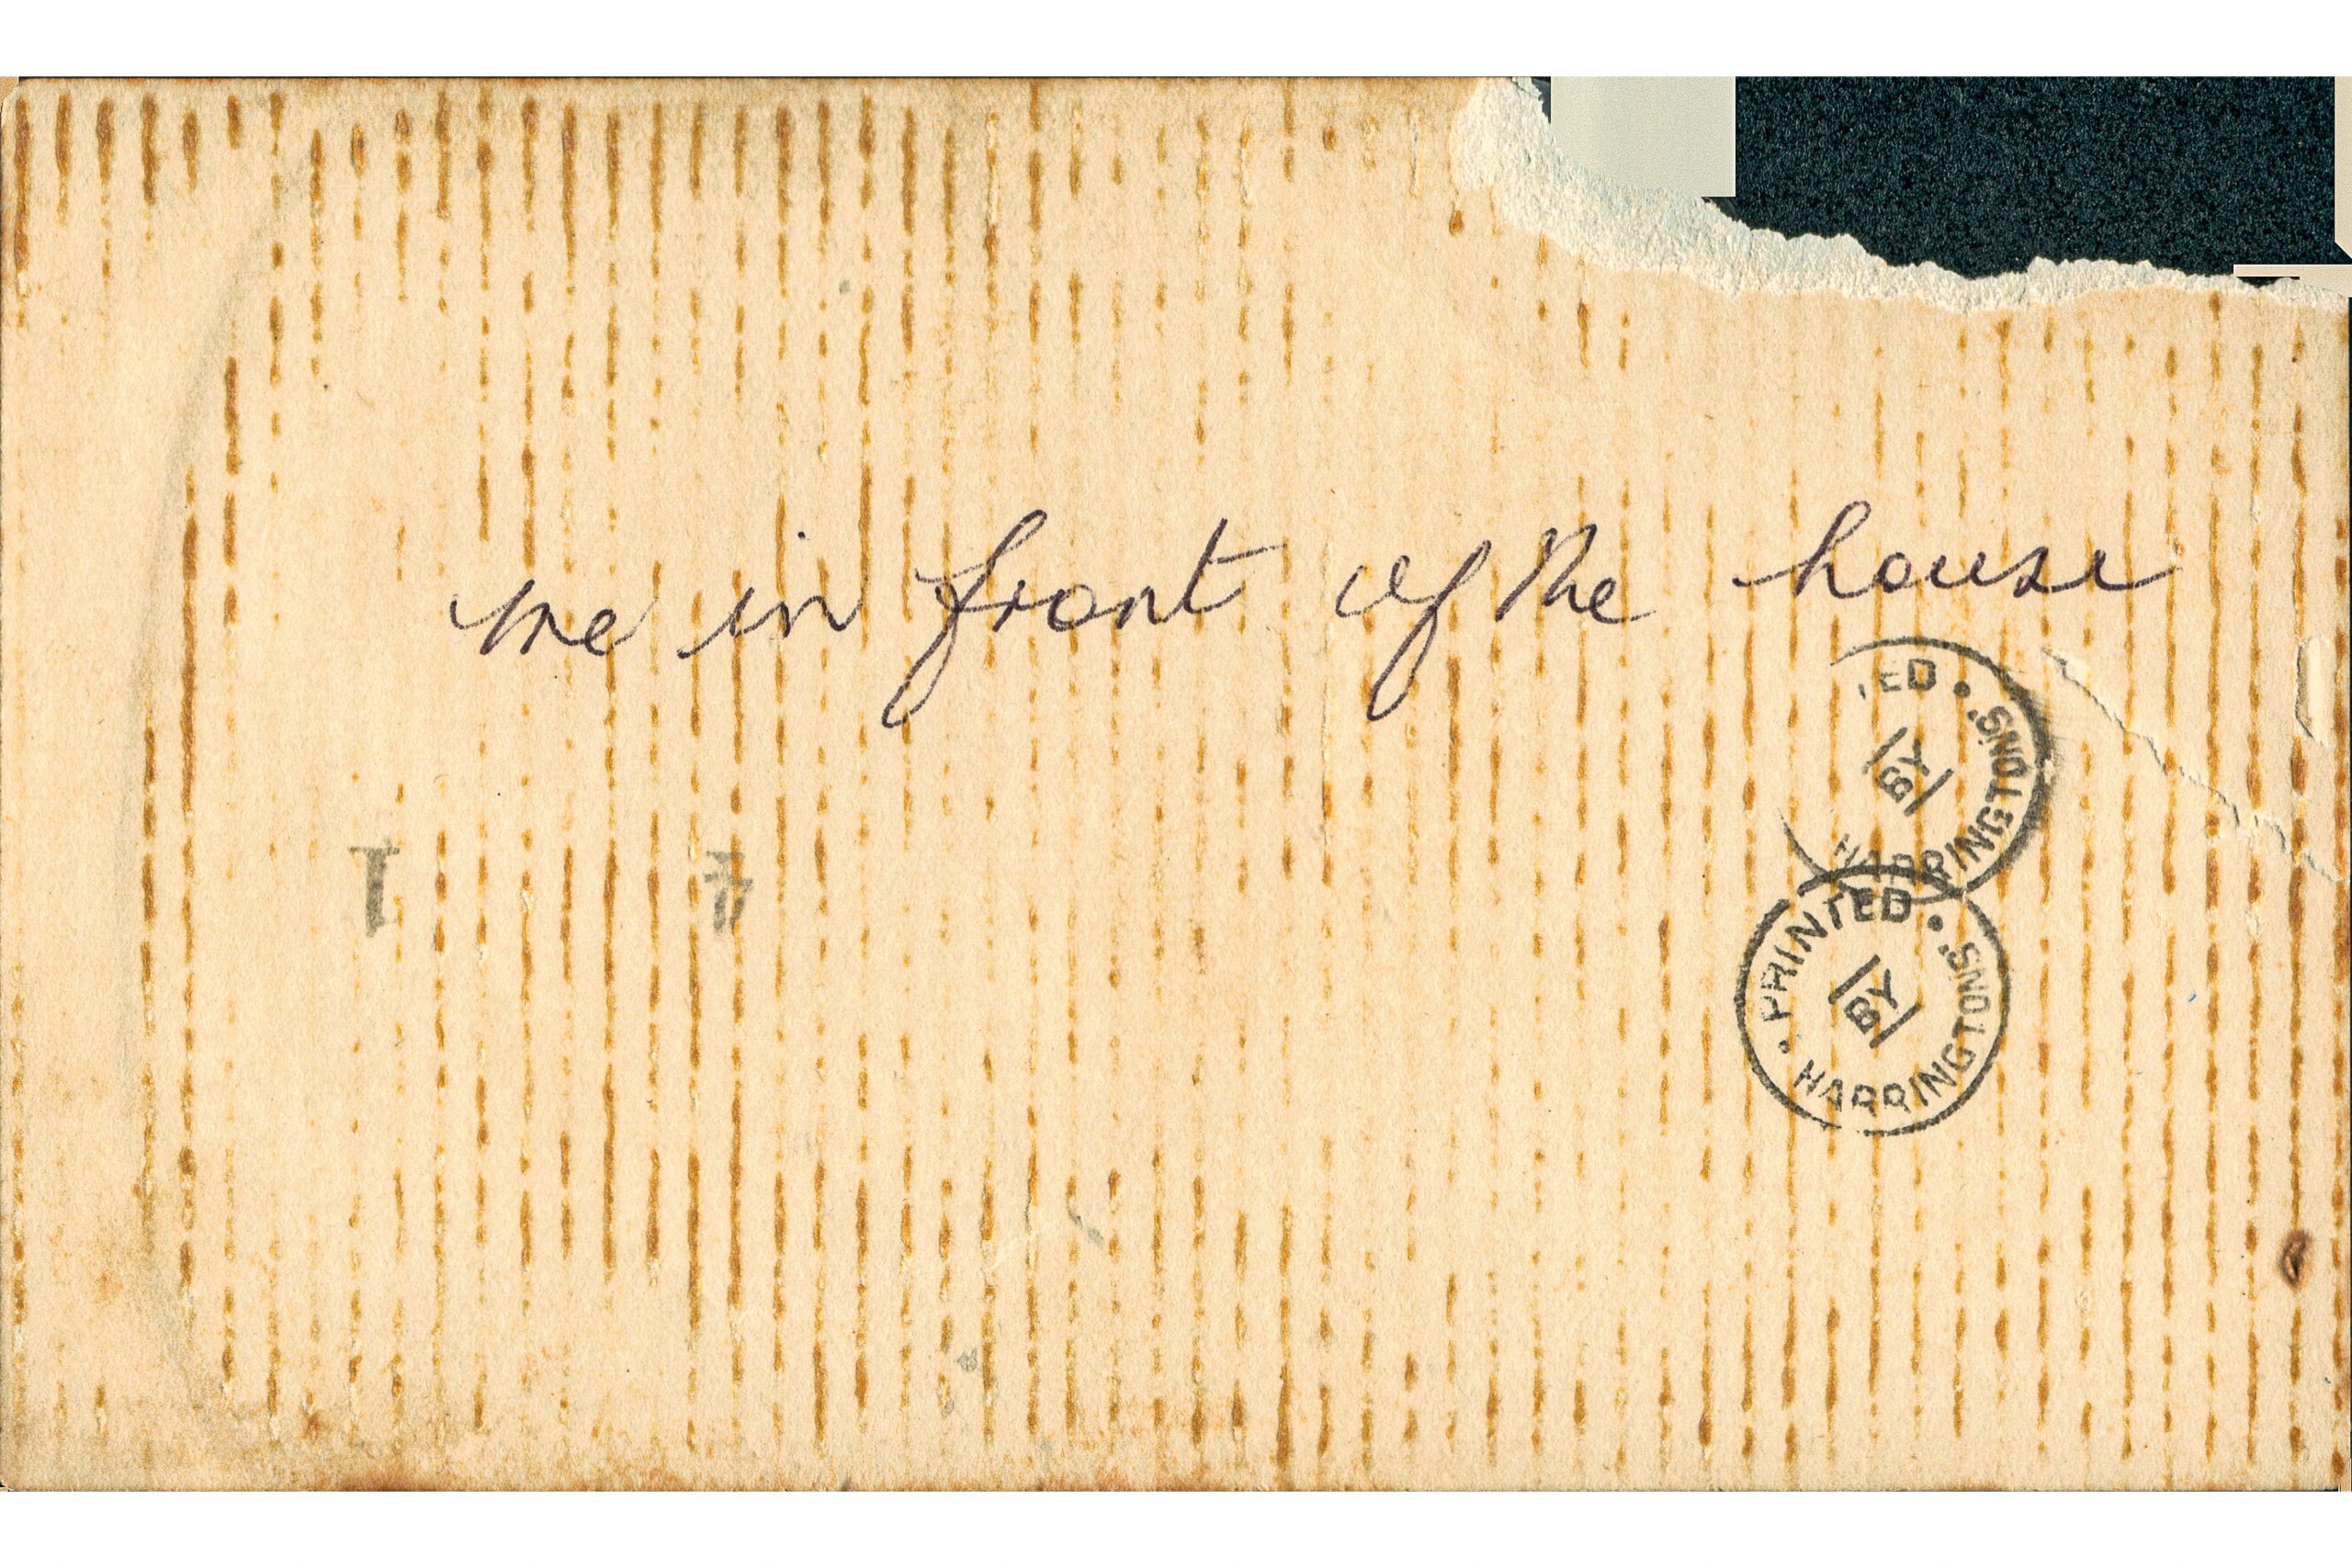 me in front of the house
TED •
BY
HARRINGTONS'
• PRINTED •
BY
HARRINGTONS'